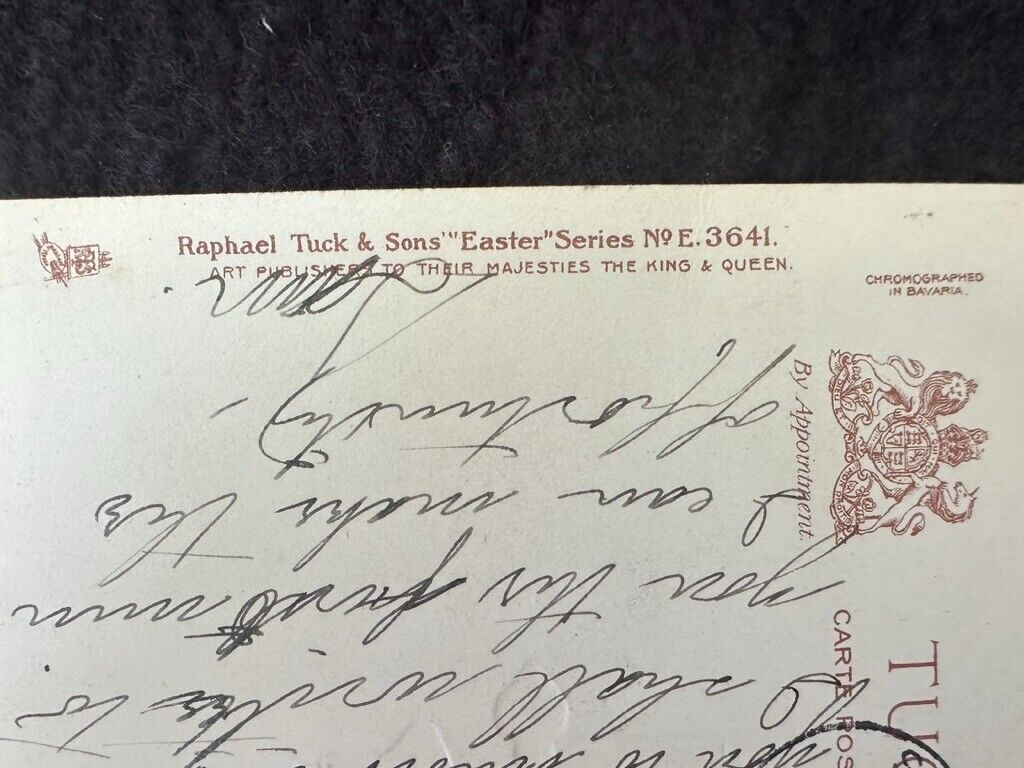 Raphael Tuck & Sons' "Easter" Series No E. 3641.
ART PUBLISHERS TO THEIR MAJESTIES THE KING & QUEEN.
CHROMOGRAPHED
IN BAVARIA.
By Appointment.
TU
CARTE POS
you to
I shall write to
you the first min
I can make the
opportunity –